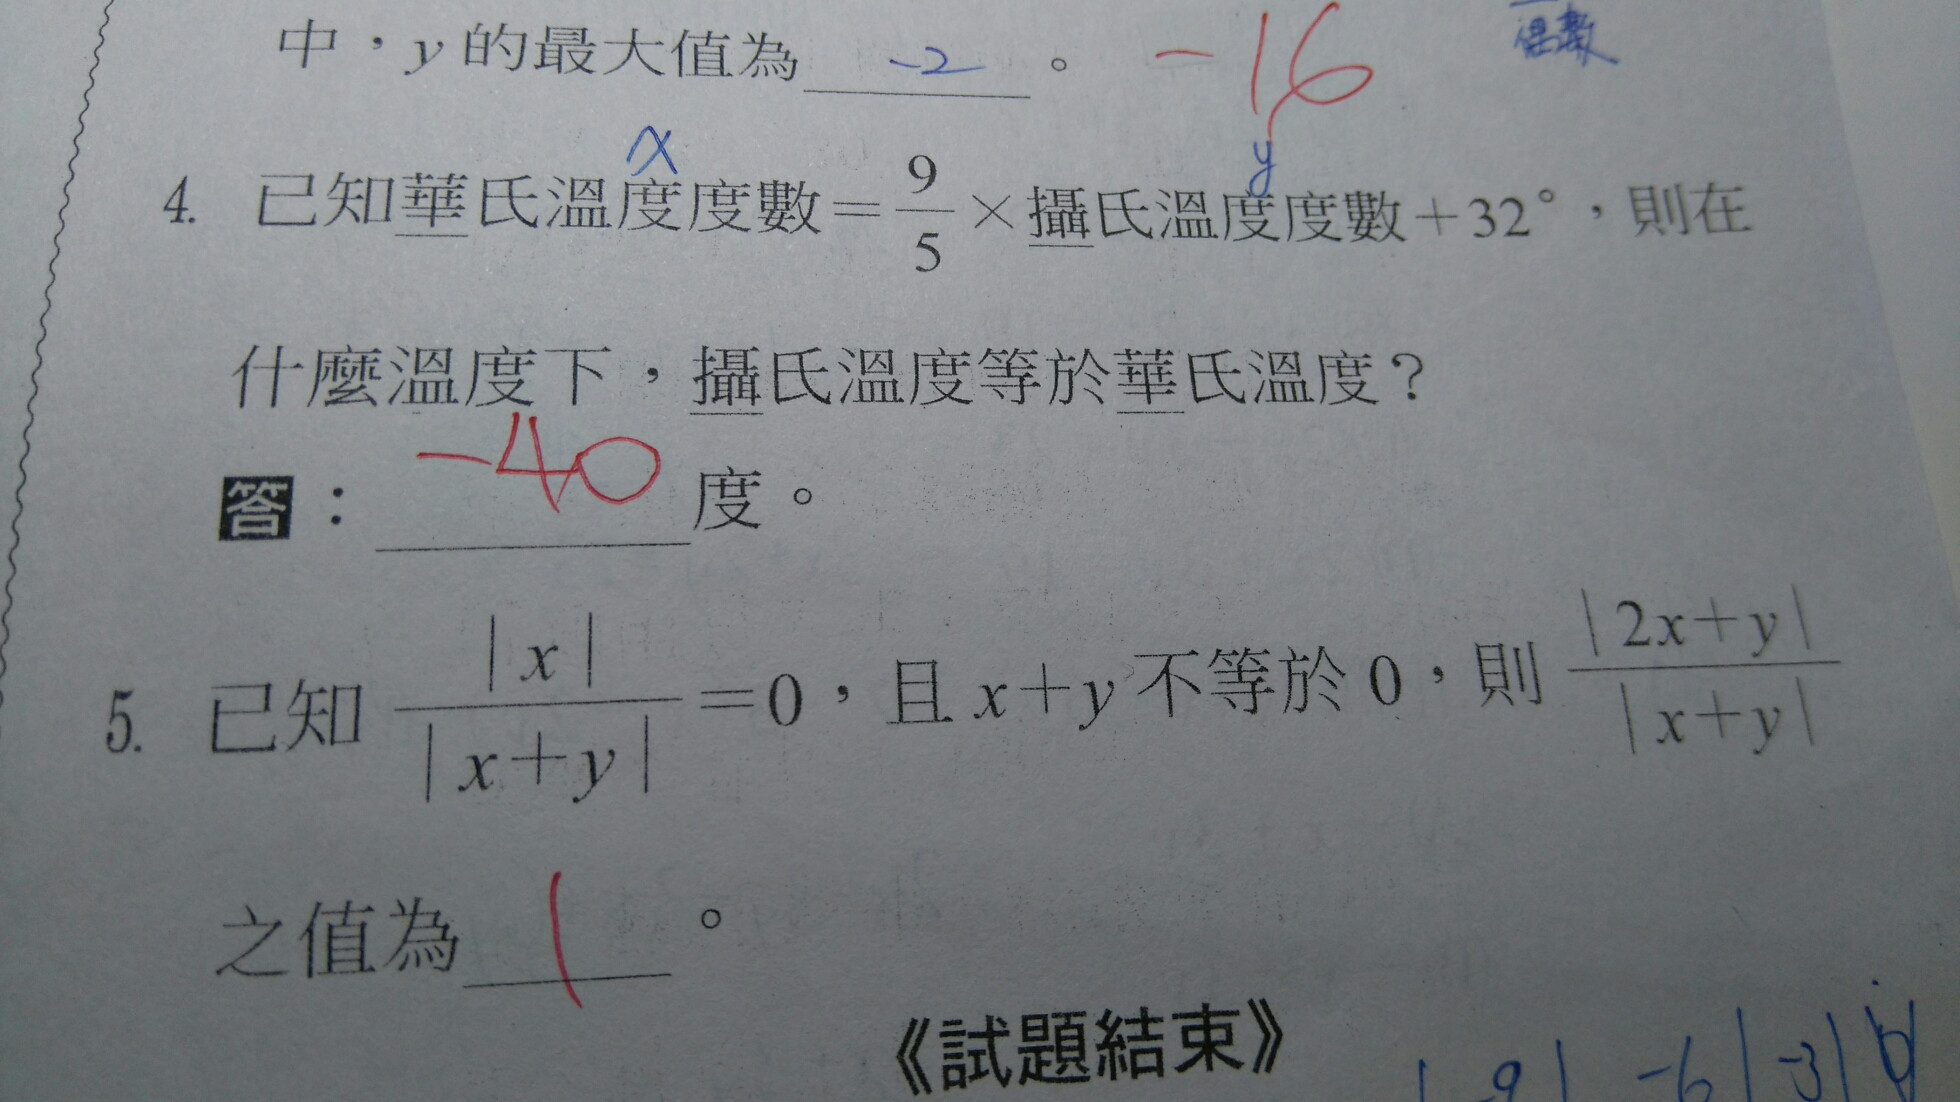 中，y的最大值為 -2 。 -16 偶數
x y
4. 已知華氏溫度度數=9/5×攝氏溫度度數+32°，則在
什麼溫度下，攝氏溫度等於華氏溫度？
答： -40 度。
5. 已知 |x|/|x+y| =0，且x+y不等於0，則 |2x+y|/|x+y|
之值為 1 。
《試題結束》
-9 | -6 | -3 | 0